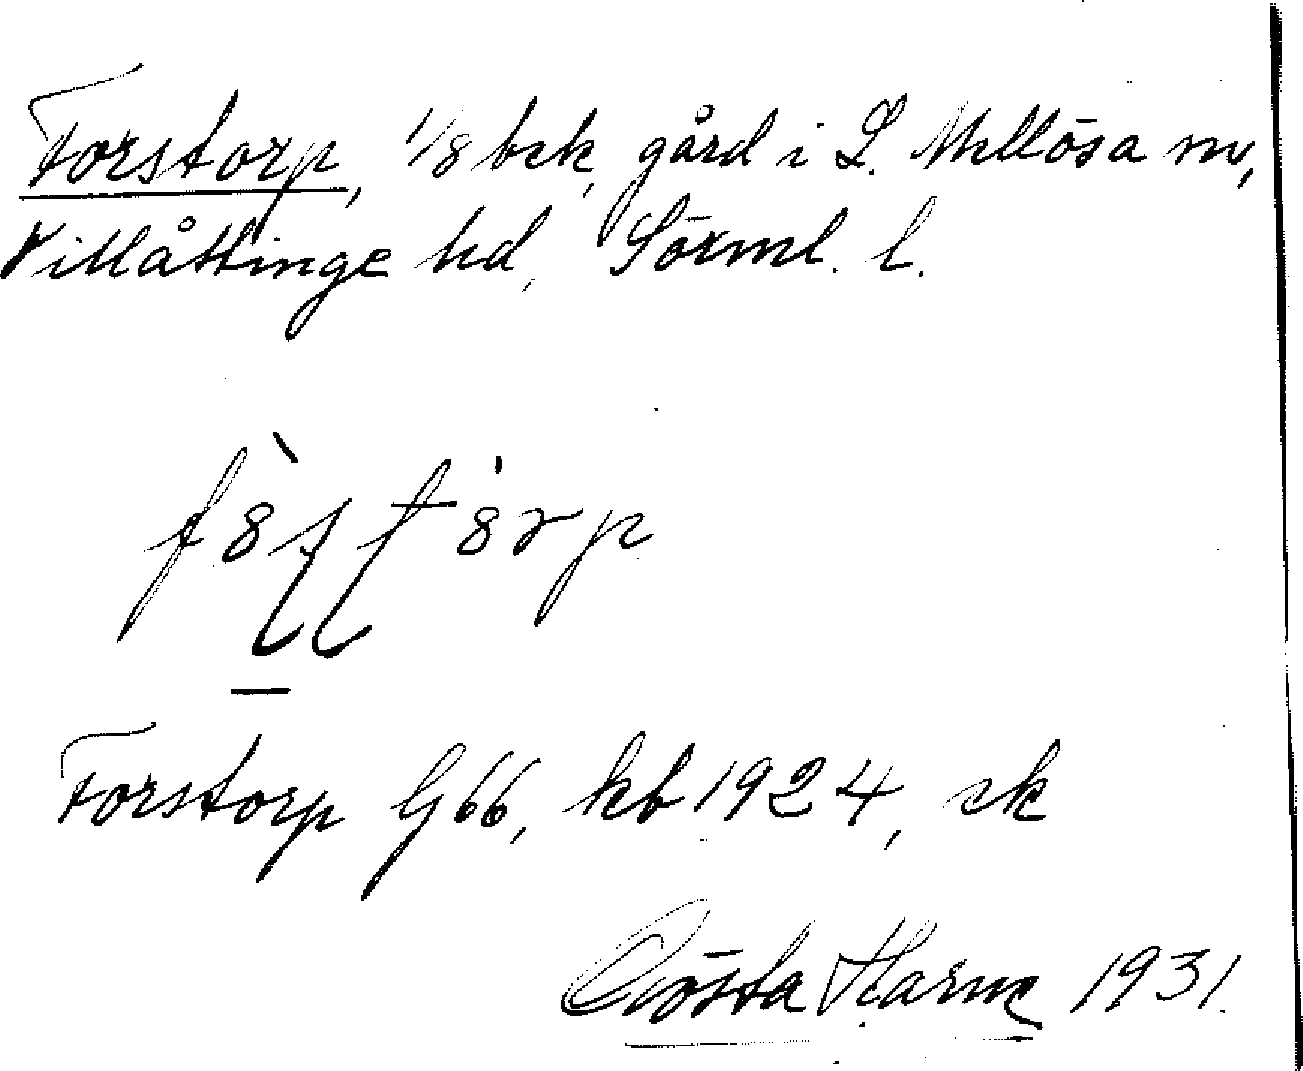 Forstorp, 1/8 bsk, gård i L. Mellösa sn,
Villåttinge hd, Sörml. l.
Forstorp G66, kb 1924, sk
Gösta Harne 1931.